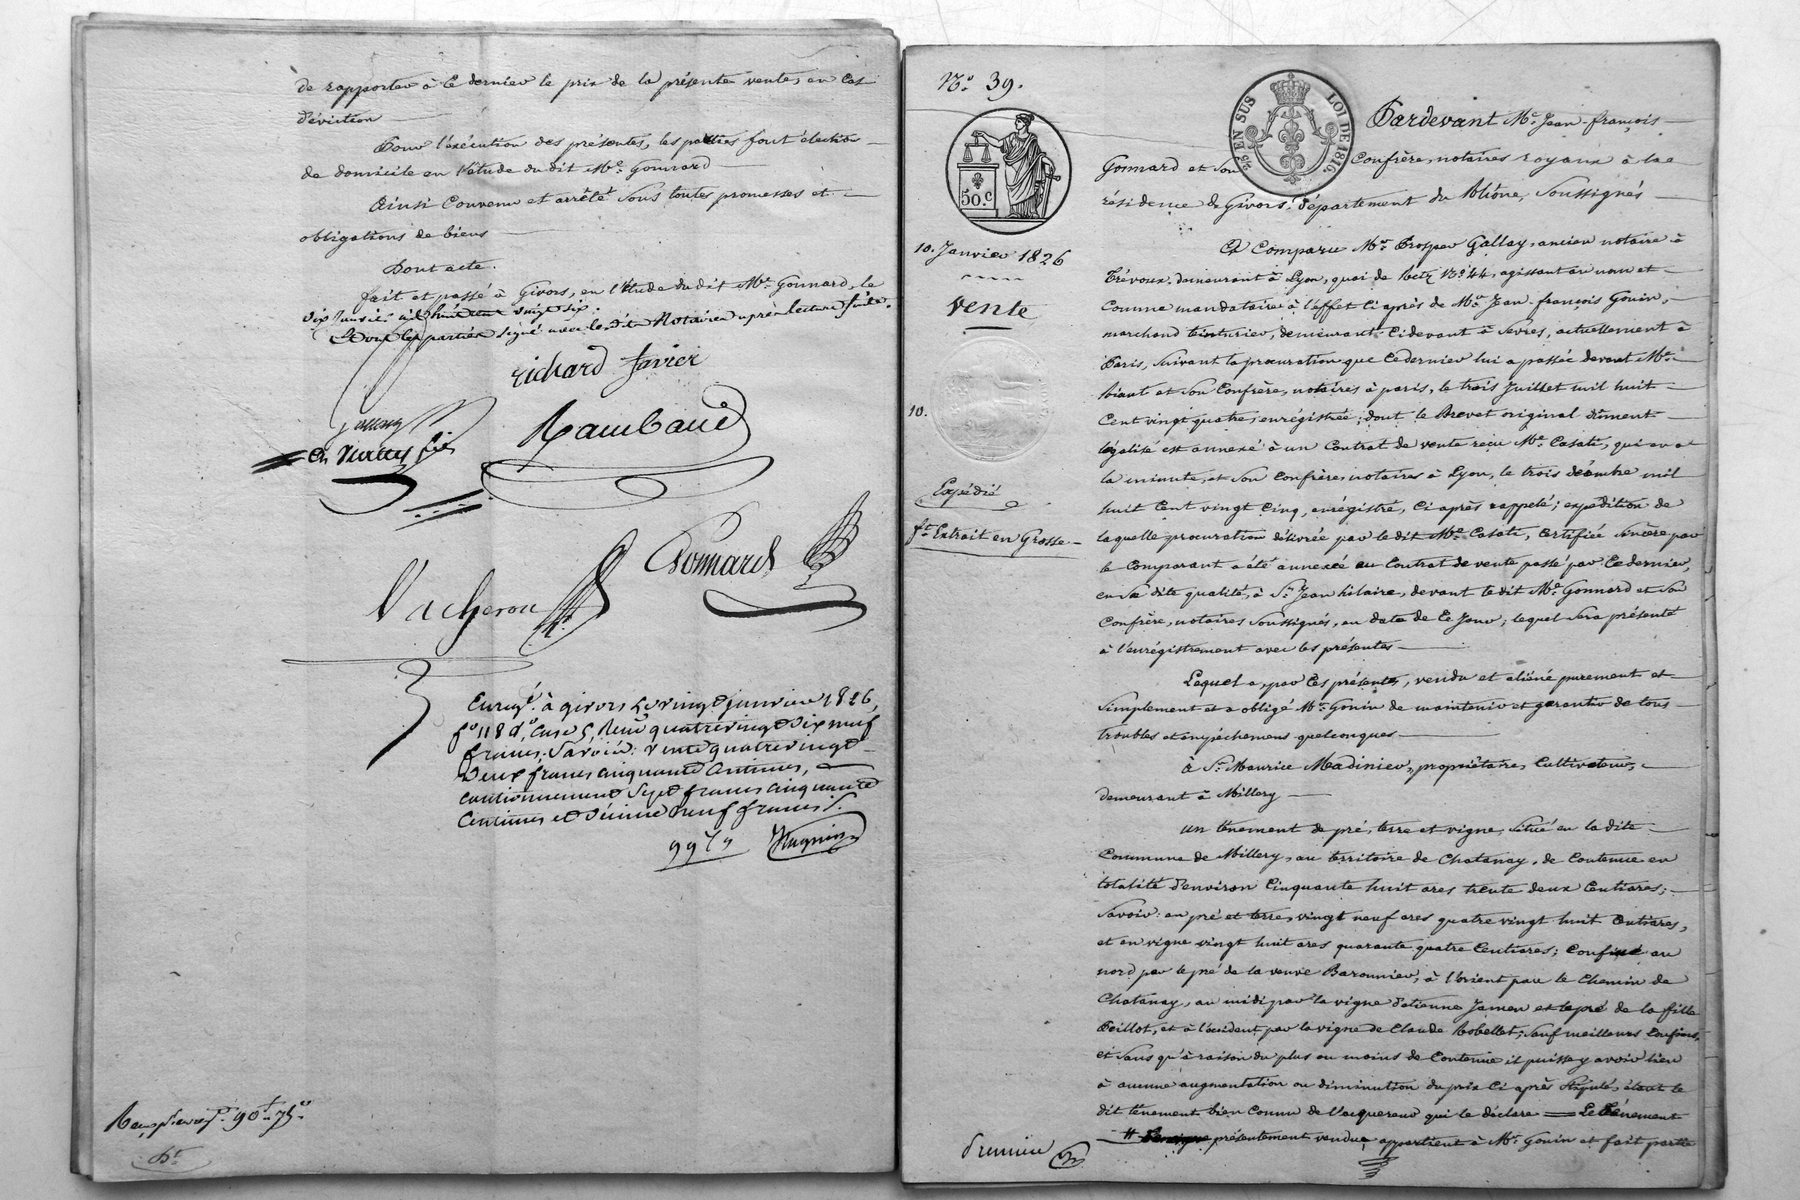 de rapporter à ce dernier le prix de la présente vente, en cas
d'éviction
Pour l'exécution des présentes, les parties font élection
de domicile en l'étude du dit Me. Gonnard
Ainsi convenu et arrêté sous toutes promesses et
obligations de biens
Dont acte.
fait et passé à Givors, en l'étude du dit Me. Gonnard, le
dix janvier mil huit cent vingt six.
les parties signé avec les dits Notaires après lecture faite.
richard Favier
Raimbaud
fils
Vacheron
Gonnard
Enregé. à givors le vingt janvier 1826,
fo 118 Case 5, Reçu quatre vingt dix neuf
francs, Savoir: vente quatre vingt
Deux francs cinquante centimes,
cautionnement Sept francs cinquante
centimes et Décime neuf francs
Hugnin
90f. 75c.
No. 39.
50.c
25 EN SUS
LOI DE 1816.
10. Janvier 1826
Vente
10.
Expédié
ft. Extrait en Grosse
Pardevant Me. Jean-françois
Gonnard et son Confrère, notaires royaux à la
résidence de Givors, département du Rhône, Soussignés
A Comparu Mr. Prosper Gallay, ancien notaire à
Trévoux, demeurant à Lyon, quai de Retz No. 44, agissant au nom et
comme mandataire à l'effet ci après de Mr. Jean-françois Gonin,
marchand teinturier, demeurant ci devant à Sevres, actuellement à
Paris, suivant la procuration que ce dernier lui a passée devant Me.
et son Confrère, notaires à paris, le trois Juillet mil huit
cent vingt quatre, enregistrée; dont le Brevet original dûment
légalisé est annexé à un Contrat de vente reçu Me. Casati, qui en a
la minute, et son Confrère, notaires à Lyon, le trois décembre mil
huit cent vingt cinq, enrégistré, ci après rappelé; expédition de
laquelle procuration délivrée par le dit Me. Casati, certifiée sincère par
le comparant a été annexée au Contrat de vente passé par ce dernier,
en sa dite qualité, à St. Jean hilaire, devant le dit Me. Gonnard et son
Confrère, notaires Soussignés, en date de ce Jour; lequel sera présenté
à l'enrégistrement avec les présentes
Lequel a, par ces présentes, vendu et aliéné purement et
simplement et a obligé Mr. Gonin de maintenir et garantir de tous
troubles et empêchemens quelconques
à Sr. Maurice Madinier, propriétaire, Cultivateur,
demeurant à Millery
un tènement de pré, terre et vigne, situé en la dite
Commune de Millery, au territoire de Chatanay, de Contenue en
totalité d'environ Cinquante huit ares trente deux Centiares;
Savoir: en pré et terre, vingt neuf ares quatre vingt huit Centiares,
et en vigne vingt huit ares quarante quatre Centiares; Confiné au
nord par le pré de la veuve Baronnier, à l'orient par le Chemin de
Chatanay, au midi par la vigne d'etienne Jamen et le pré de la fille
Peillot, et à l'occident par la vigne de Claude Robellet; Sauf meilleurs Confins,
et Sans qu'à raison du plus ou moins de Contenue il puisse y avoir lieu
à aucune augmentation ou diminution du prix ci après Stipulé, étant le
dit tènement bien connu de l'acquereur qui le déclare = Le tènement
présentement vendu, appartient à Mr. Gonin et fait partie
premier